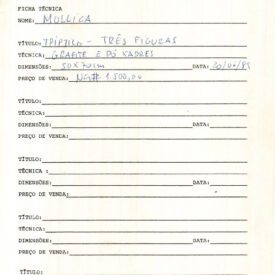 FICHA TÉCNICA
NOME: MOLLICA
TÍTULO: TRÍPTICO - TRÊS FIGURAS
TÉCNICA: GRAFITE E PÓ XADRES
DIMENSÕES: 50X70cm DATA: 20/06/89
PREÇO DE VENDA: NCz# 1.500,00
TÍTULO:
TÉCNICA:
DIMENSÕES: DATA:
PREÇO DE VENDA:
TÍTULO:
TÉCNICA :
DIMENSÕES: DATA:
PREÇO DE VENDA:
TÍTULO:
TÉCNICA:
DIMENSÕES: DATA:
PREÇO DE VENDA:
TÍTULO: